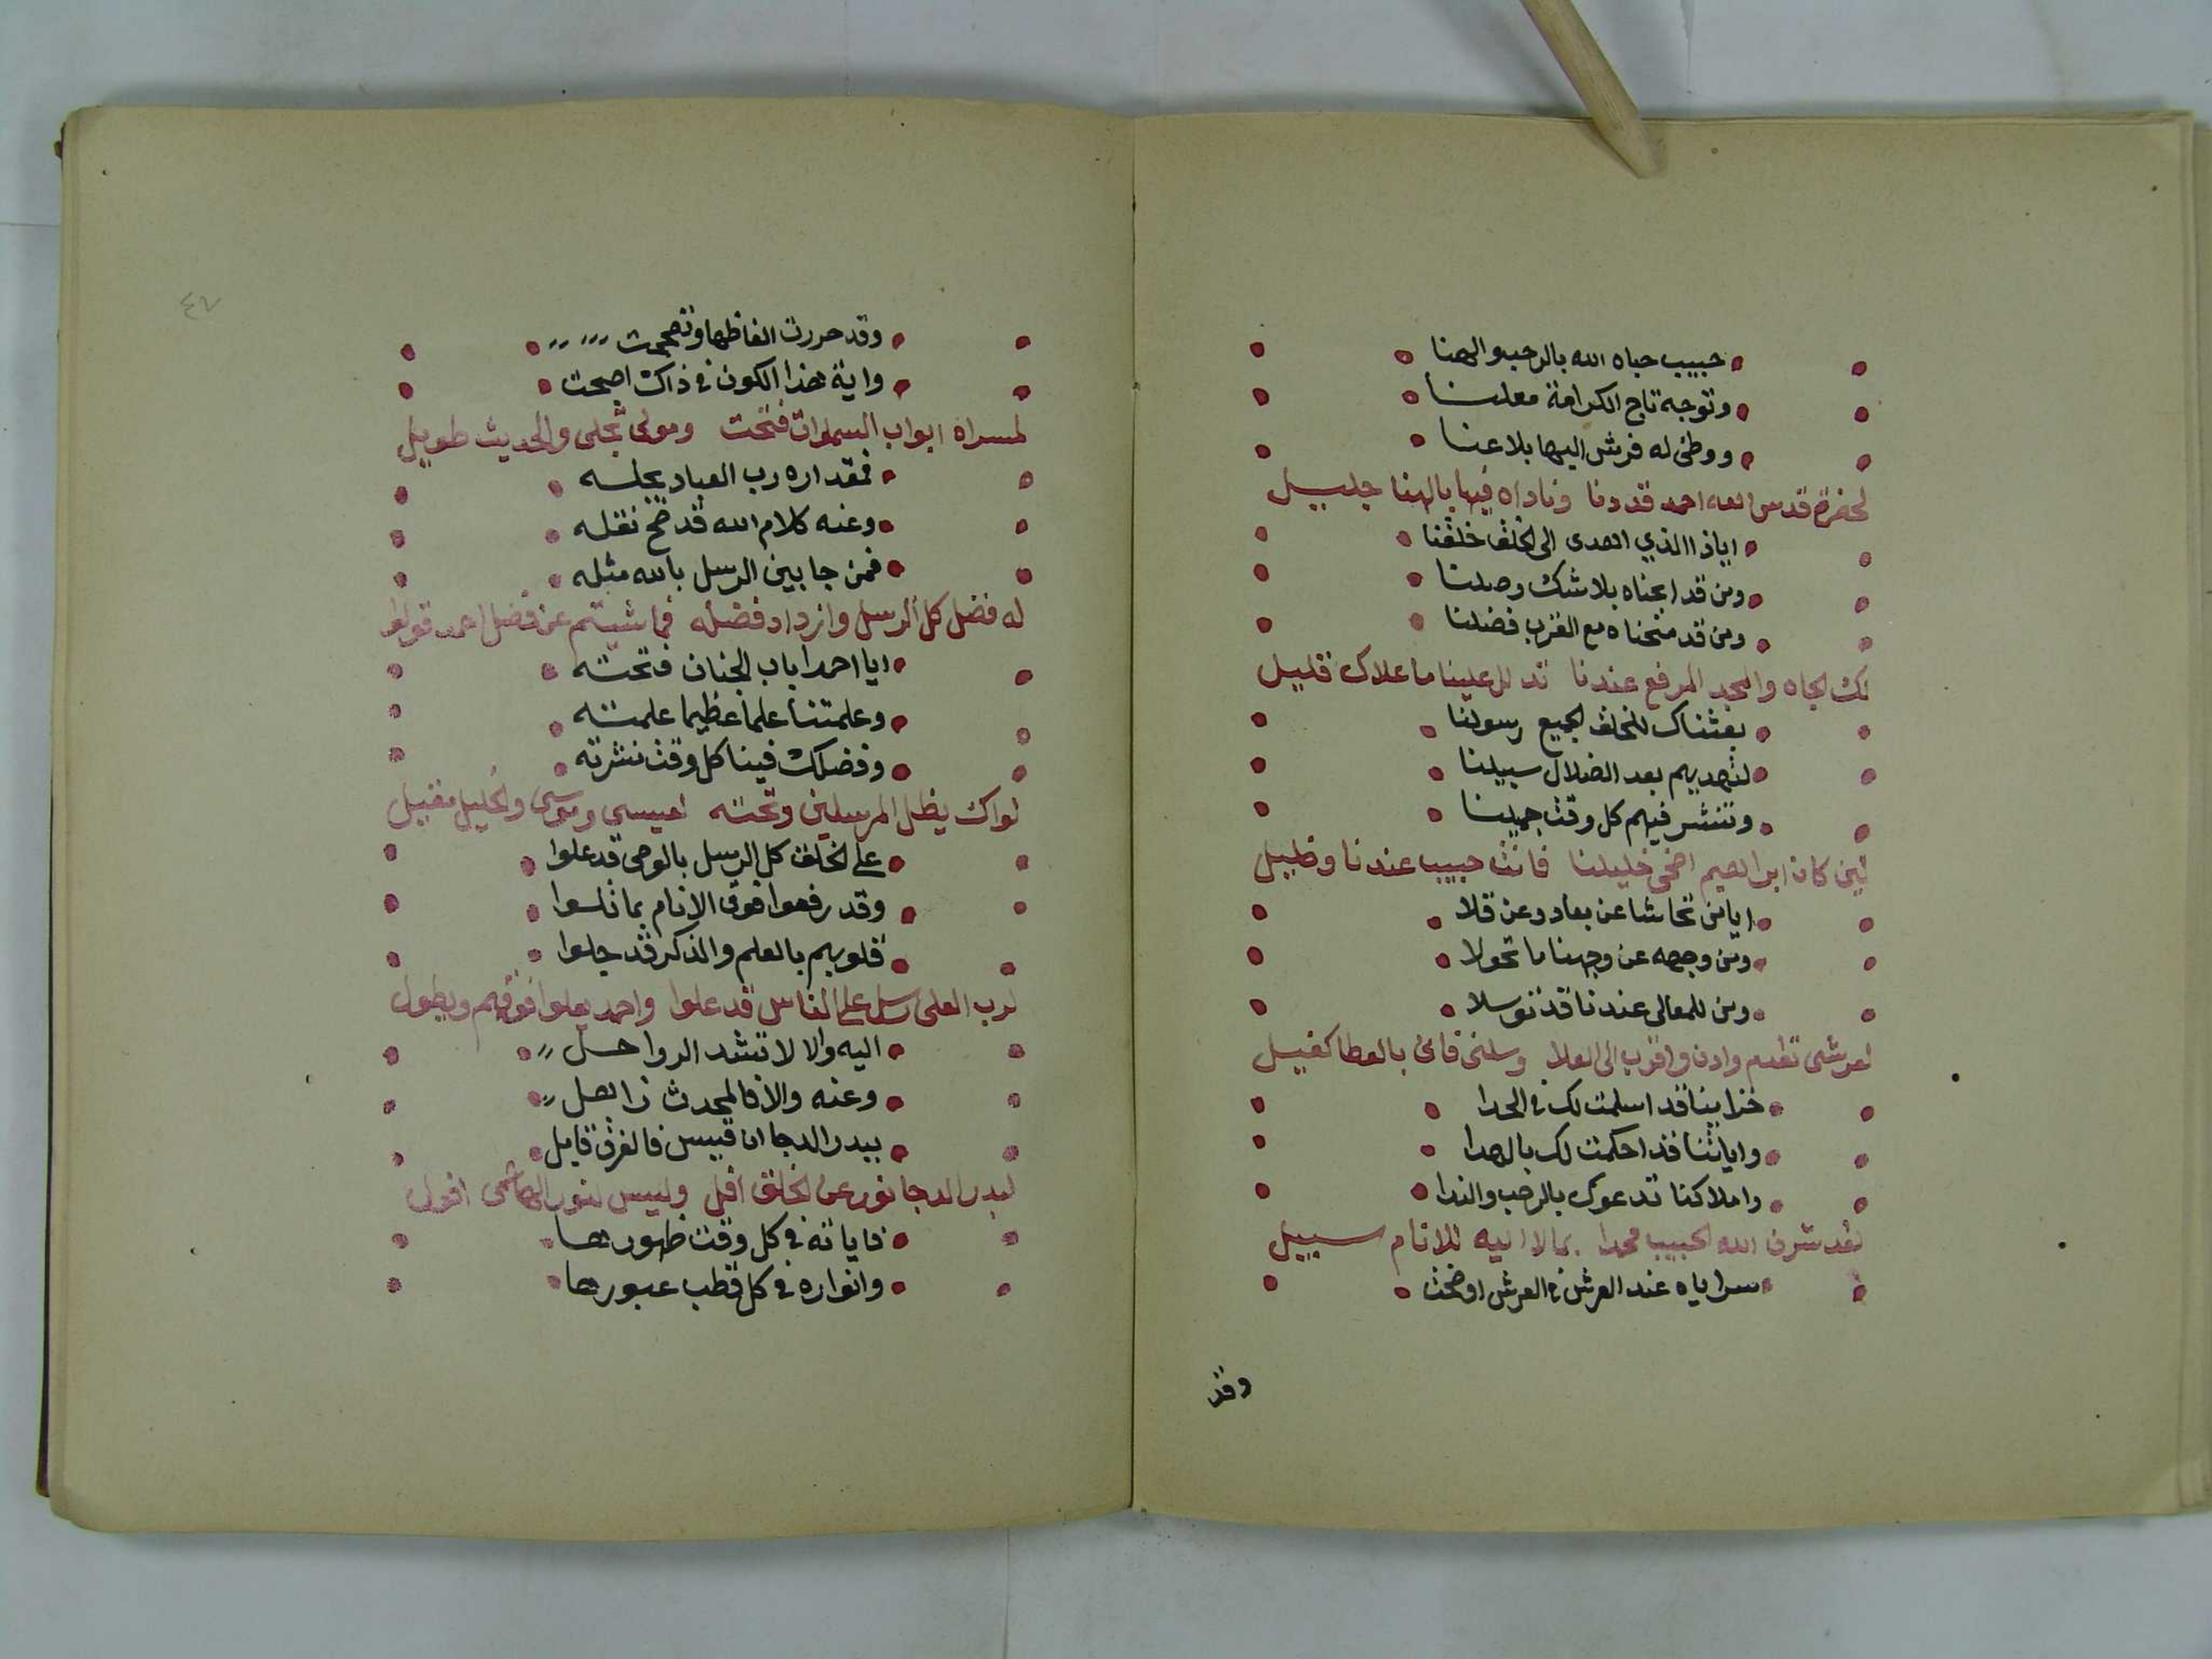 حبيب حباه الله بالرحب والهنا
وتوجه تاج الكرامة معلنا
ووطى له فرش اليها بلا عنا
لحضرة قدس الله احمد قد دنا وناداه فيها بالهنا جليل
اياذا الذي اهدى الى الخلق خلقنا
ومن قد ابحناه بلا شك وصلنا
ومن قد منحناه مع القرب فضلنا
لك الجاه والمجد المرفع عندنا تدلل علينا ما علاك قليل
بعثناك للخلق الجميع رسولنا
لتهديهم بعد الضلال سبيلنا
وتنشر فيهم كل وقت جميلنا
لئن كان ابراهيم اضحى خليلنا فانت حبيب عندنا وخليل
ايا من تحاشا عن بعاد وعن قلا
ومن وجهه عن وجهنا ما تحولا
ومن للمعالى عندنا قد توسلا
لعرشى تقدم وادن واقرب الى العلا وسلنى فانى بالعطا كفيل
خزايننا قد اسلمت لك في الحدا
واياتنا قد احكمت لك بالهدا
واملاكنا تدعوك بالرحب والندا
لقد شرف الله الحبيب محمدا بما لا اليه للانام سبيل
سراياه عند العرش في العرش اوضحت
وقد
٤٧
وقد حررت الفاظها وتصححت
واية هذا الكون في ذاك اصبحت
لمسراه ابواب السموات فتحت ومولى تجلى والحديث طويل
فمقداره رب العباد يجله
وعنه كلام الله قد صح نقله
فمن جا بين الرسل بالله مثله
له فضل كل الرسل وازداد فضله فما شيتم عن فضل احمد قولوا
ايا احمدا باب الجنان فتحته
وعلمتنا علما عظيما علمته
وفضلك فينا كل وقت نشرته
لواك يظل المرسلين وتحته لعيسى وموسى والخليل مقيل
على الخلق كل الرسل بالوحى قد علوا
وقد رفعوا فوق الانام بما تلوا
قلوبهم بالعلم والذكر قد جلوا
لرب العلى رسل على الناس قد علوا واحمد يعلوا فوقهم ويطول
اليه والا لا تشد الرواحل
وعنه والا فالمحدث زاهل
ببدر الدجا ان قيس فالفرق قايل
لبدر الدجا نور عن الخلق افل وليس لنور الهاشمى افول
فاياته في كل وقت ظهورها
وانواره في كل قطب عبورها